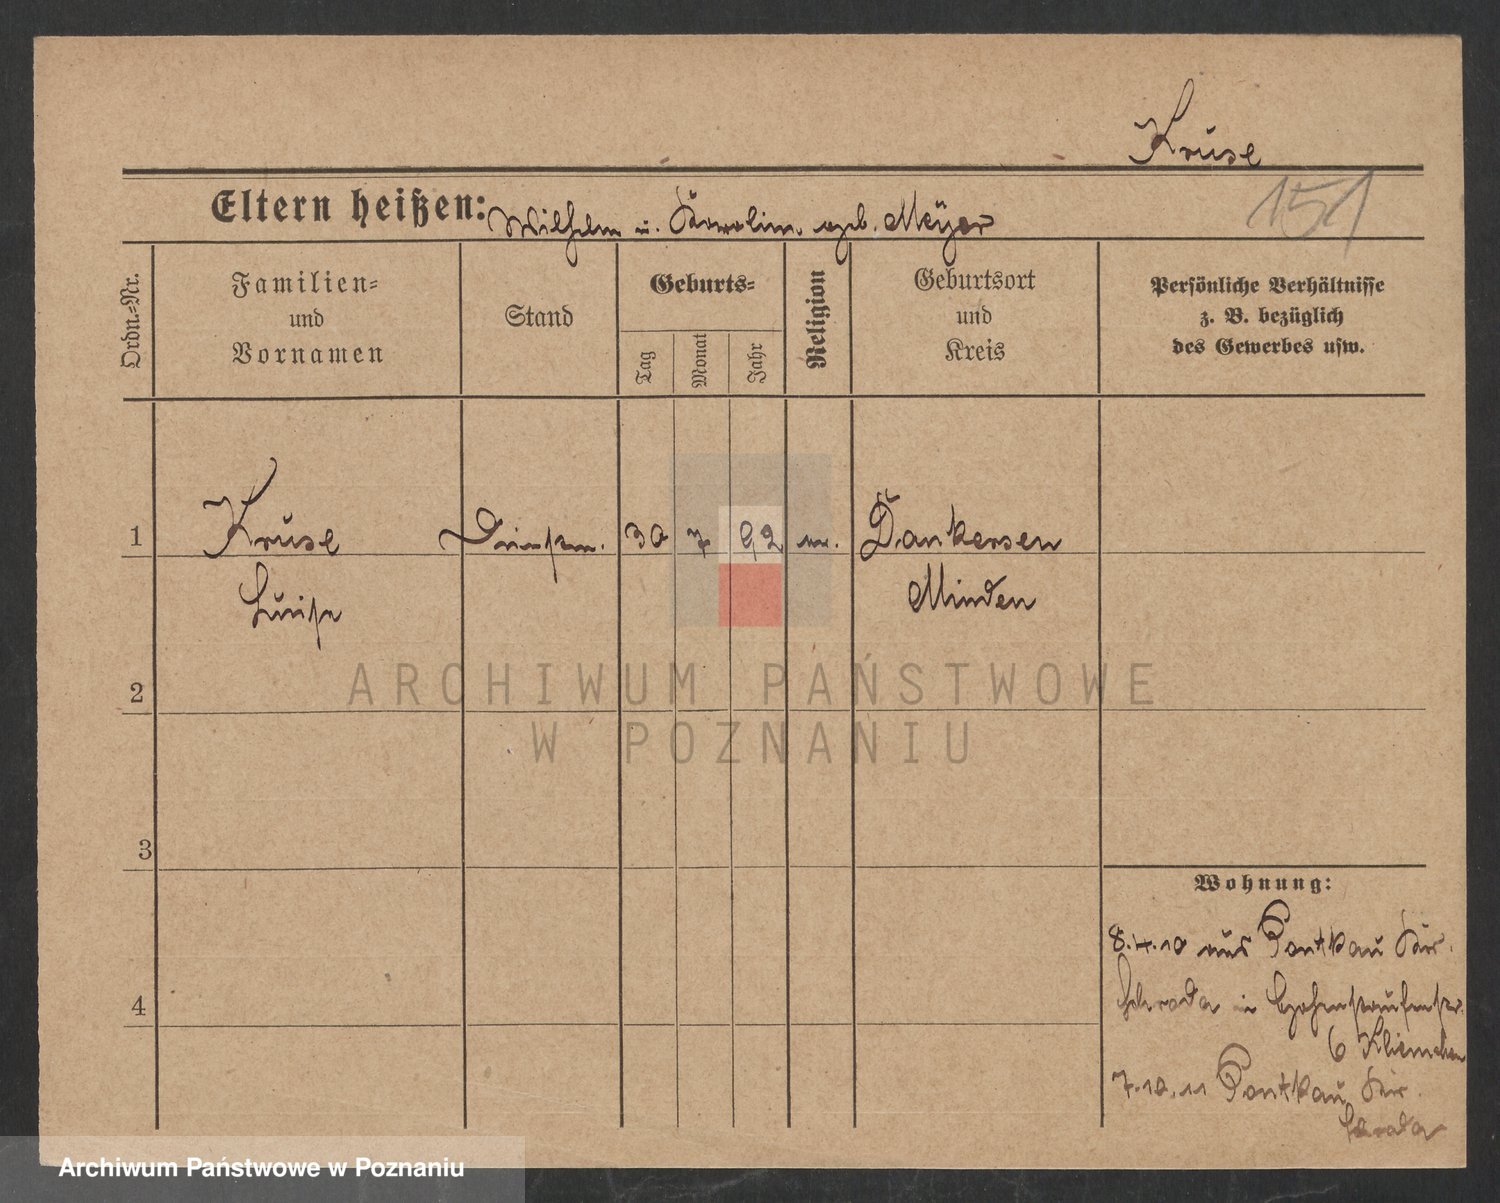 Kruse
151
Eltern heißen: Wilhelm u. Karolin. geb. Meyer
Ordn.-Nr.
Familien-
und
Vornamen
Stand
Geburts-
Tag
Monat
Jahr
Religion
Geburtsort
und
Kreis
Persönliche Verhältnisse
z. B. bezüglich
des Gewerbes usw.
1 Kruse 30 7 92 Dankersen
Luise Minden
2
3
4
Wohnung:
8.4.10 aus Pontkau Kr.
Schroda in Hohenstaufenstr.
6
7.10.11 Pontkau Kr.
Schroda
ARCHIWUM PAŃSTWOWE
W POZNANIU
Archiwum Państwowe w Poznaniu